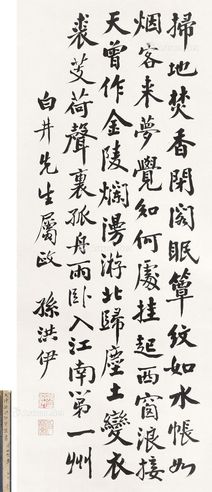 掃地焚香閉閣眠簟紋如水帳如
烟客来夢覺知何處挂起西窗浪接
天曾作金陵爛漫游北歸塵土變衣
裘芰荷聲裏孤舟雨卧入江南第一州
白井先生屬政 孫洪伊